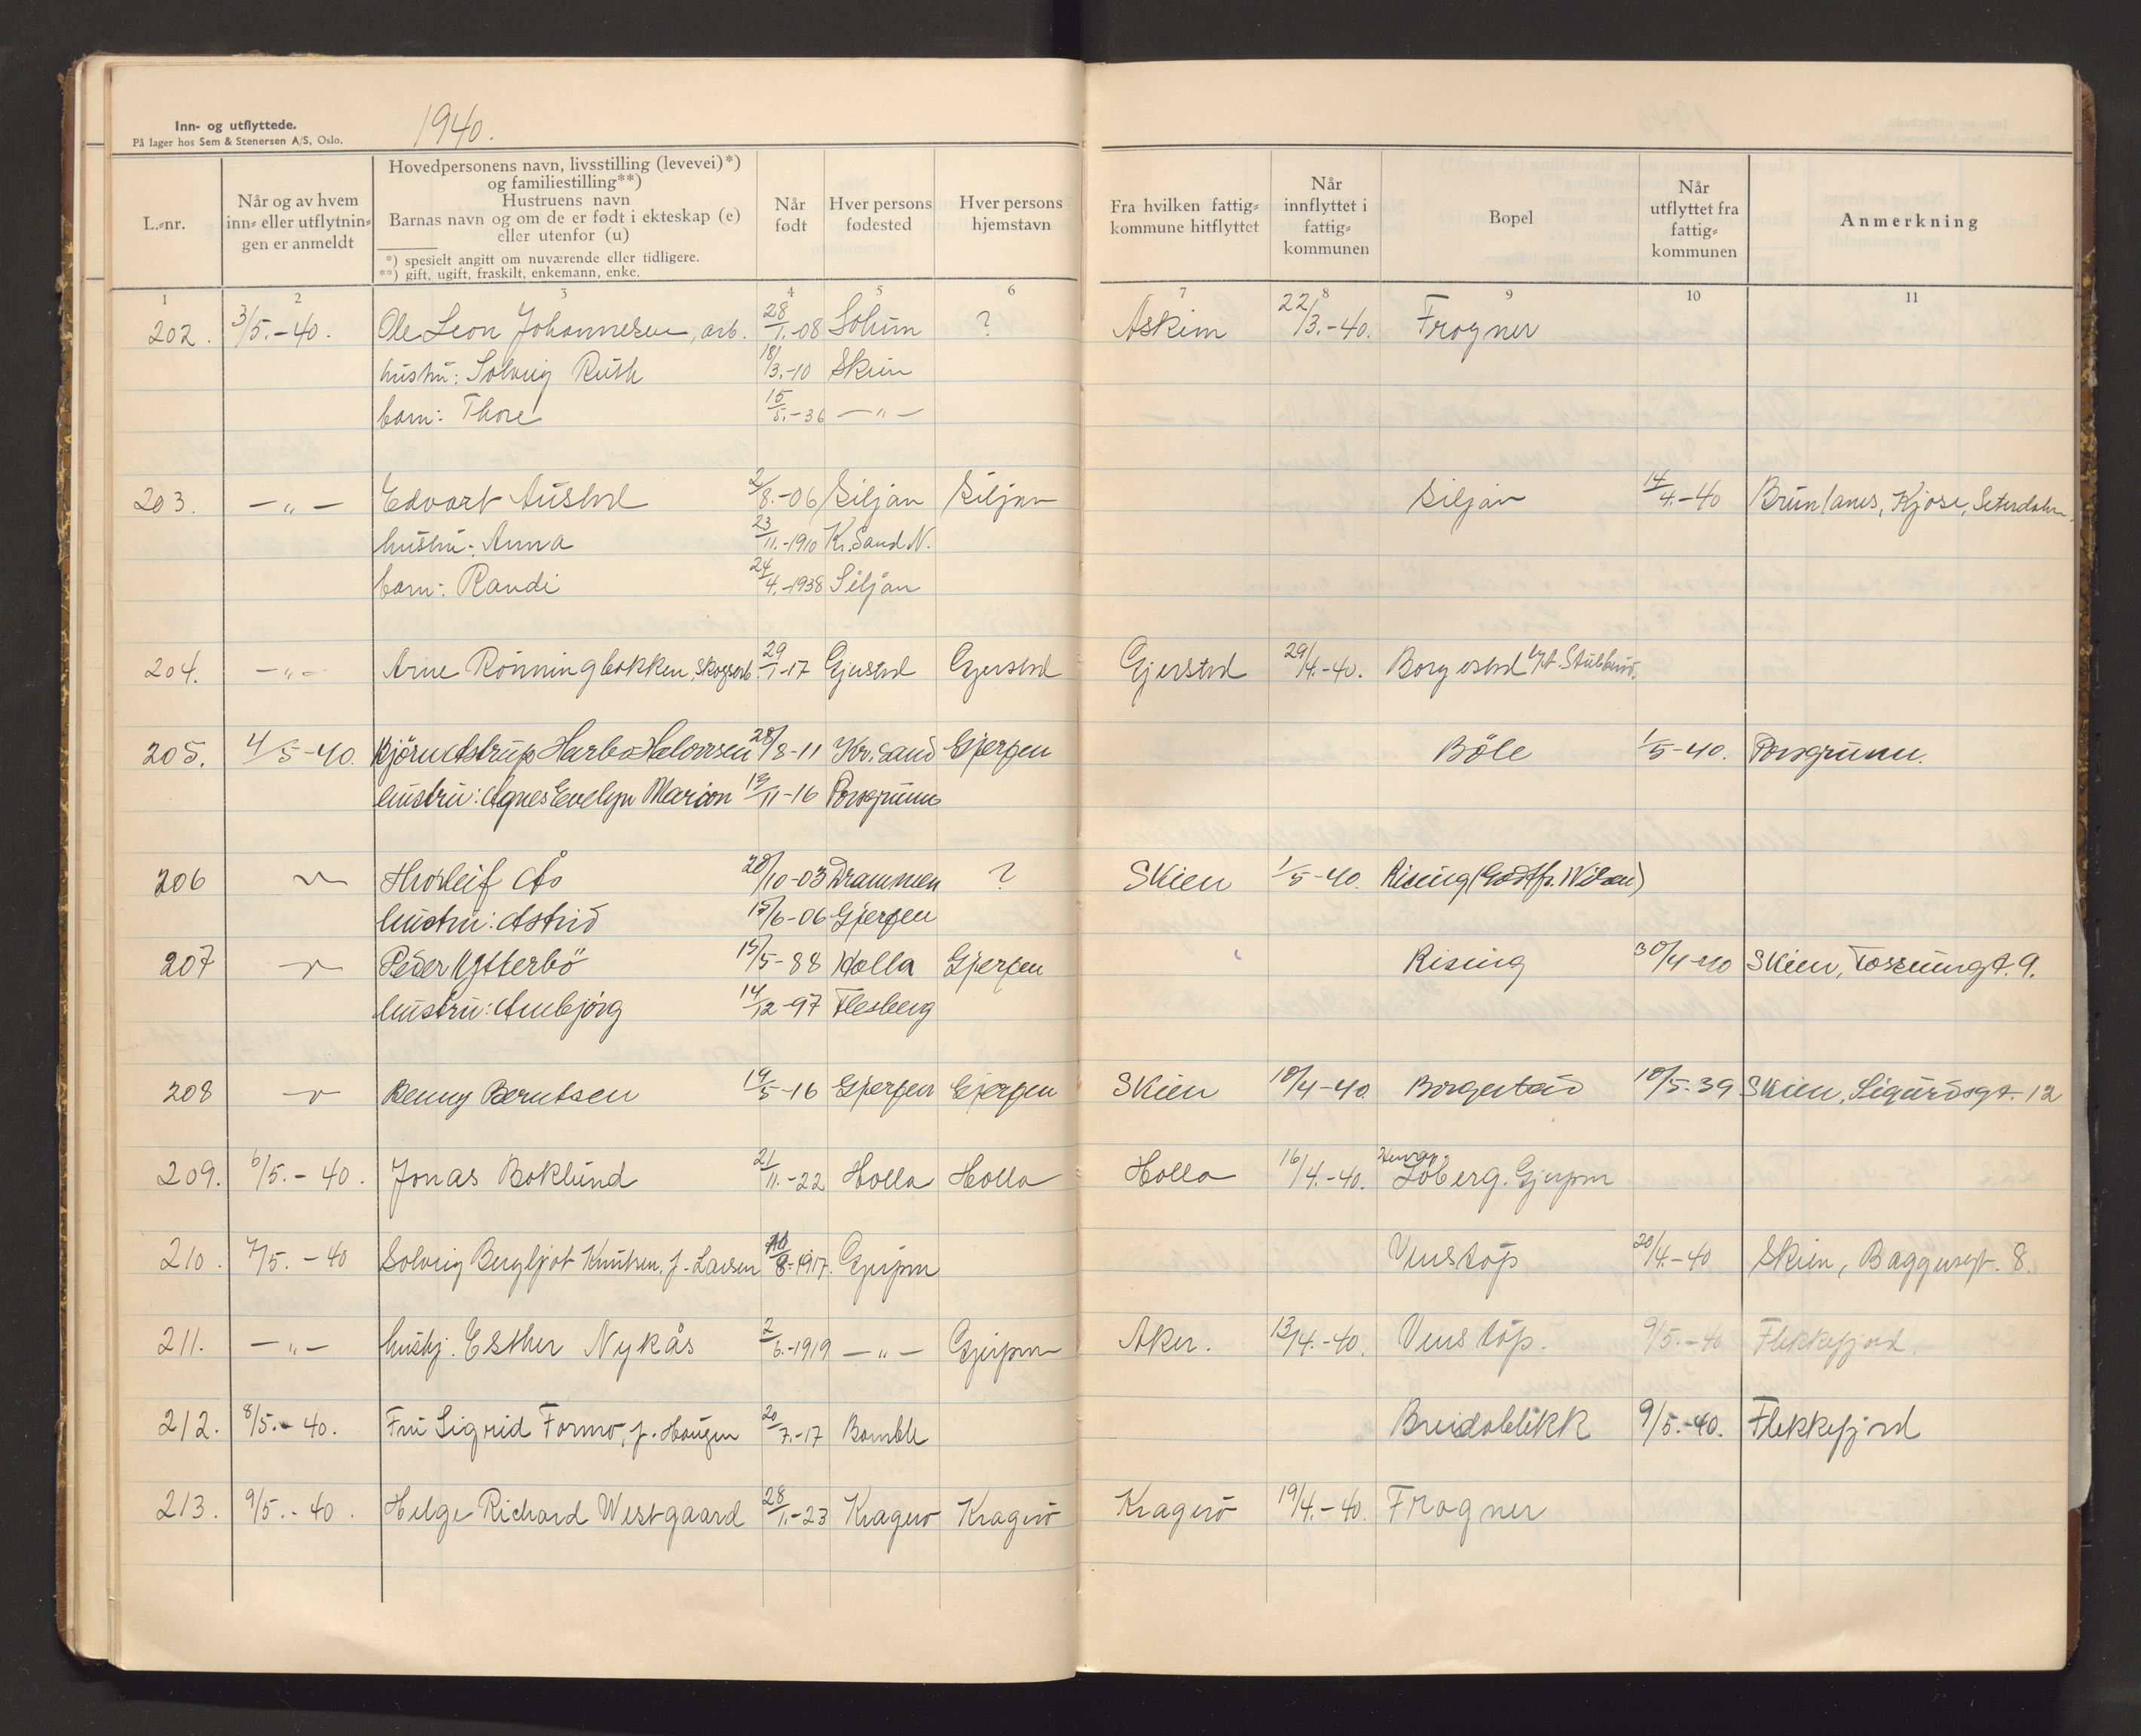 Inn- og utflyttede.
På lager hos Sem & Stenersen A/S, Oslo.
1940.
L.-nr.
Når og av hvem
inn- eller utflytnin-
gen er anmeldt
Hovedpersonens navn, livsstilling (levevei)*)
og familiestilling**)
Hustruens navn
Barnas navn og om de er født i ekteskap (e)
eller utenfor (u)
*) spesielt angitt om nuværende eller tidligere.
**) gift, ugift, fraskilt, enkemann, enke.
Når
født
Hver persons
fødested
Hver persons
hjemstavn
Fra hvilken fattig-
kommune hitflyttet
Når
innflyttet i
fattig-
kommunen
Bopel
Når
utflyttet fra
fattig-
kommunen
Anmerkning
1 2 3 4 5 6 7 8 9 10 11
202. 3/5.-40. Ole Leon Johannesen, arb. 28/1.-08 Solum ? Askim 22/3.-40. Frogner
hustru: Solveig Ruth 18/3.-10 Skien
barn: Thore 15/5.-36 -"-
203. -"- Edvart Austad 2/8.-06 Siljan Siljan Siljan 14/4.-40 Brunlanes, Kjose, Seterdalen
hustru: Anna 23/11.-1910 Kr.Sand N.
barn: Randi 24/4.-1938 Siljan
204. -"- Arne Rönningbakken, Skogsarb. 29/1-17 Gjerstad Gjerstad Gjerstad 29/4.-40. Borgestad
205. 4/5-40. Bjørn Astrup Harbo Halvorsen 28/8-11 Kr.sand Gjerpen Böle 1/5-40. Porsgrunn.
hustru: Agnes Evelyn Marion 13/11-16 Porsgrunn
206 Thorleif Ås 28/10-03 Drammen ? Skien 1/5-40. Rising (Godtfr. Nilsen)
hustru: Astrid 15/6-06 Gjerpen
207 Peder Ytterbö 15/5-88 Holla Gjerpen Rising 30/4-40 Skien, 9.
hustru: Anbjørg 14/12-97 Flesberg
208 Benny Berntsen 19/5-16 Gjerpen Gjerpen Skien 10/4-40 Borgestad 10/5-39 Skien, Sigurdsgt. 12
209. 6/5.-40. Jonas Boklund 21/11.-22 Holla Holla Holla 16/4.-40. Löberg. Gjerpen
210. 7/5.-40 Solveig Bergljot Knutsen, f. Larsen 8-1917. Gjerpen Venstöp 20/4.-40 Skien, Baggersgt. 8.
211. -"- hushj. Esther Nykås 2/6.-1919 -"- Gjerpen Aker. 13/4.-40. Venstöp. 9/5.-40 Flekkefjord.
212. 8/5.-40. Fru Sigrid Formo, f. Haugen 20/7.-17 Bamble Breidablikk 9/5.-40. Flekkefjord
213. 9/5.-40. Helge Richard Westgaard 28/1.-23 Kragerö Kragerö Kragerö 19/4.-40. Frogner